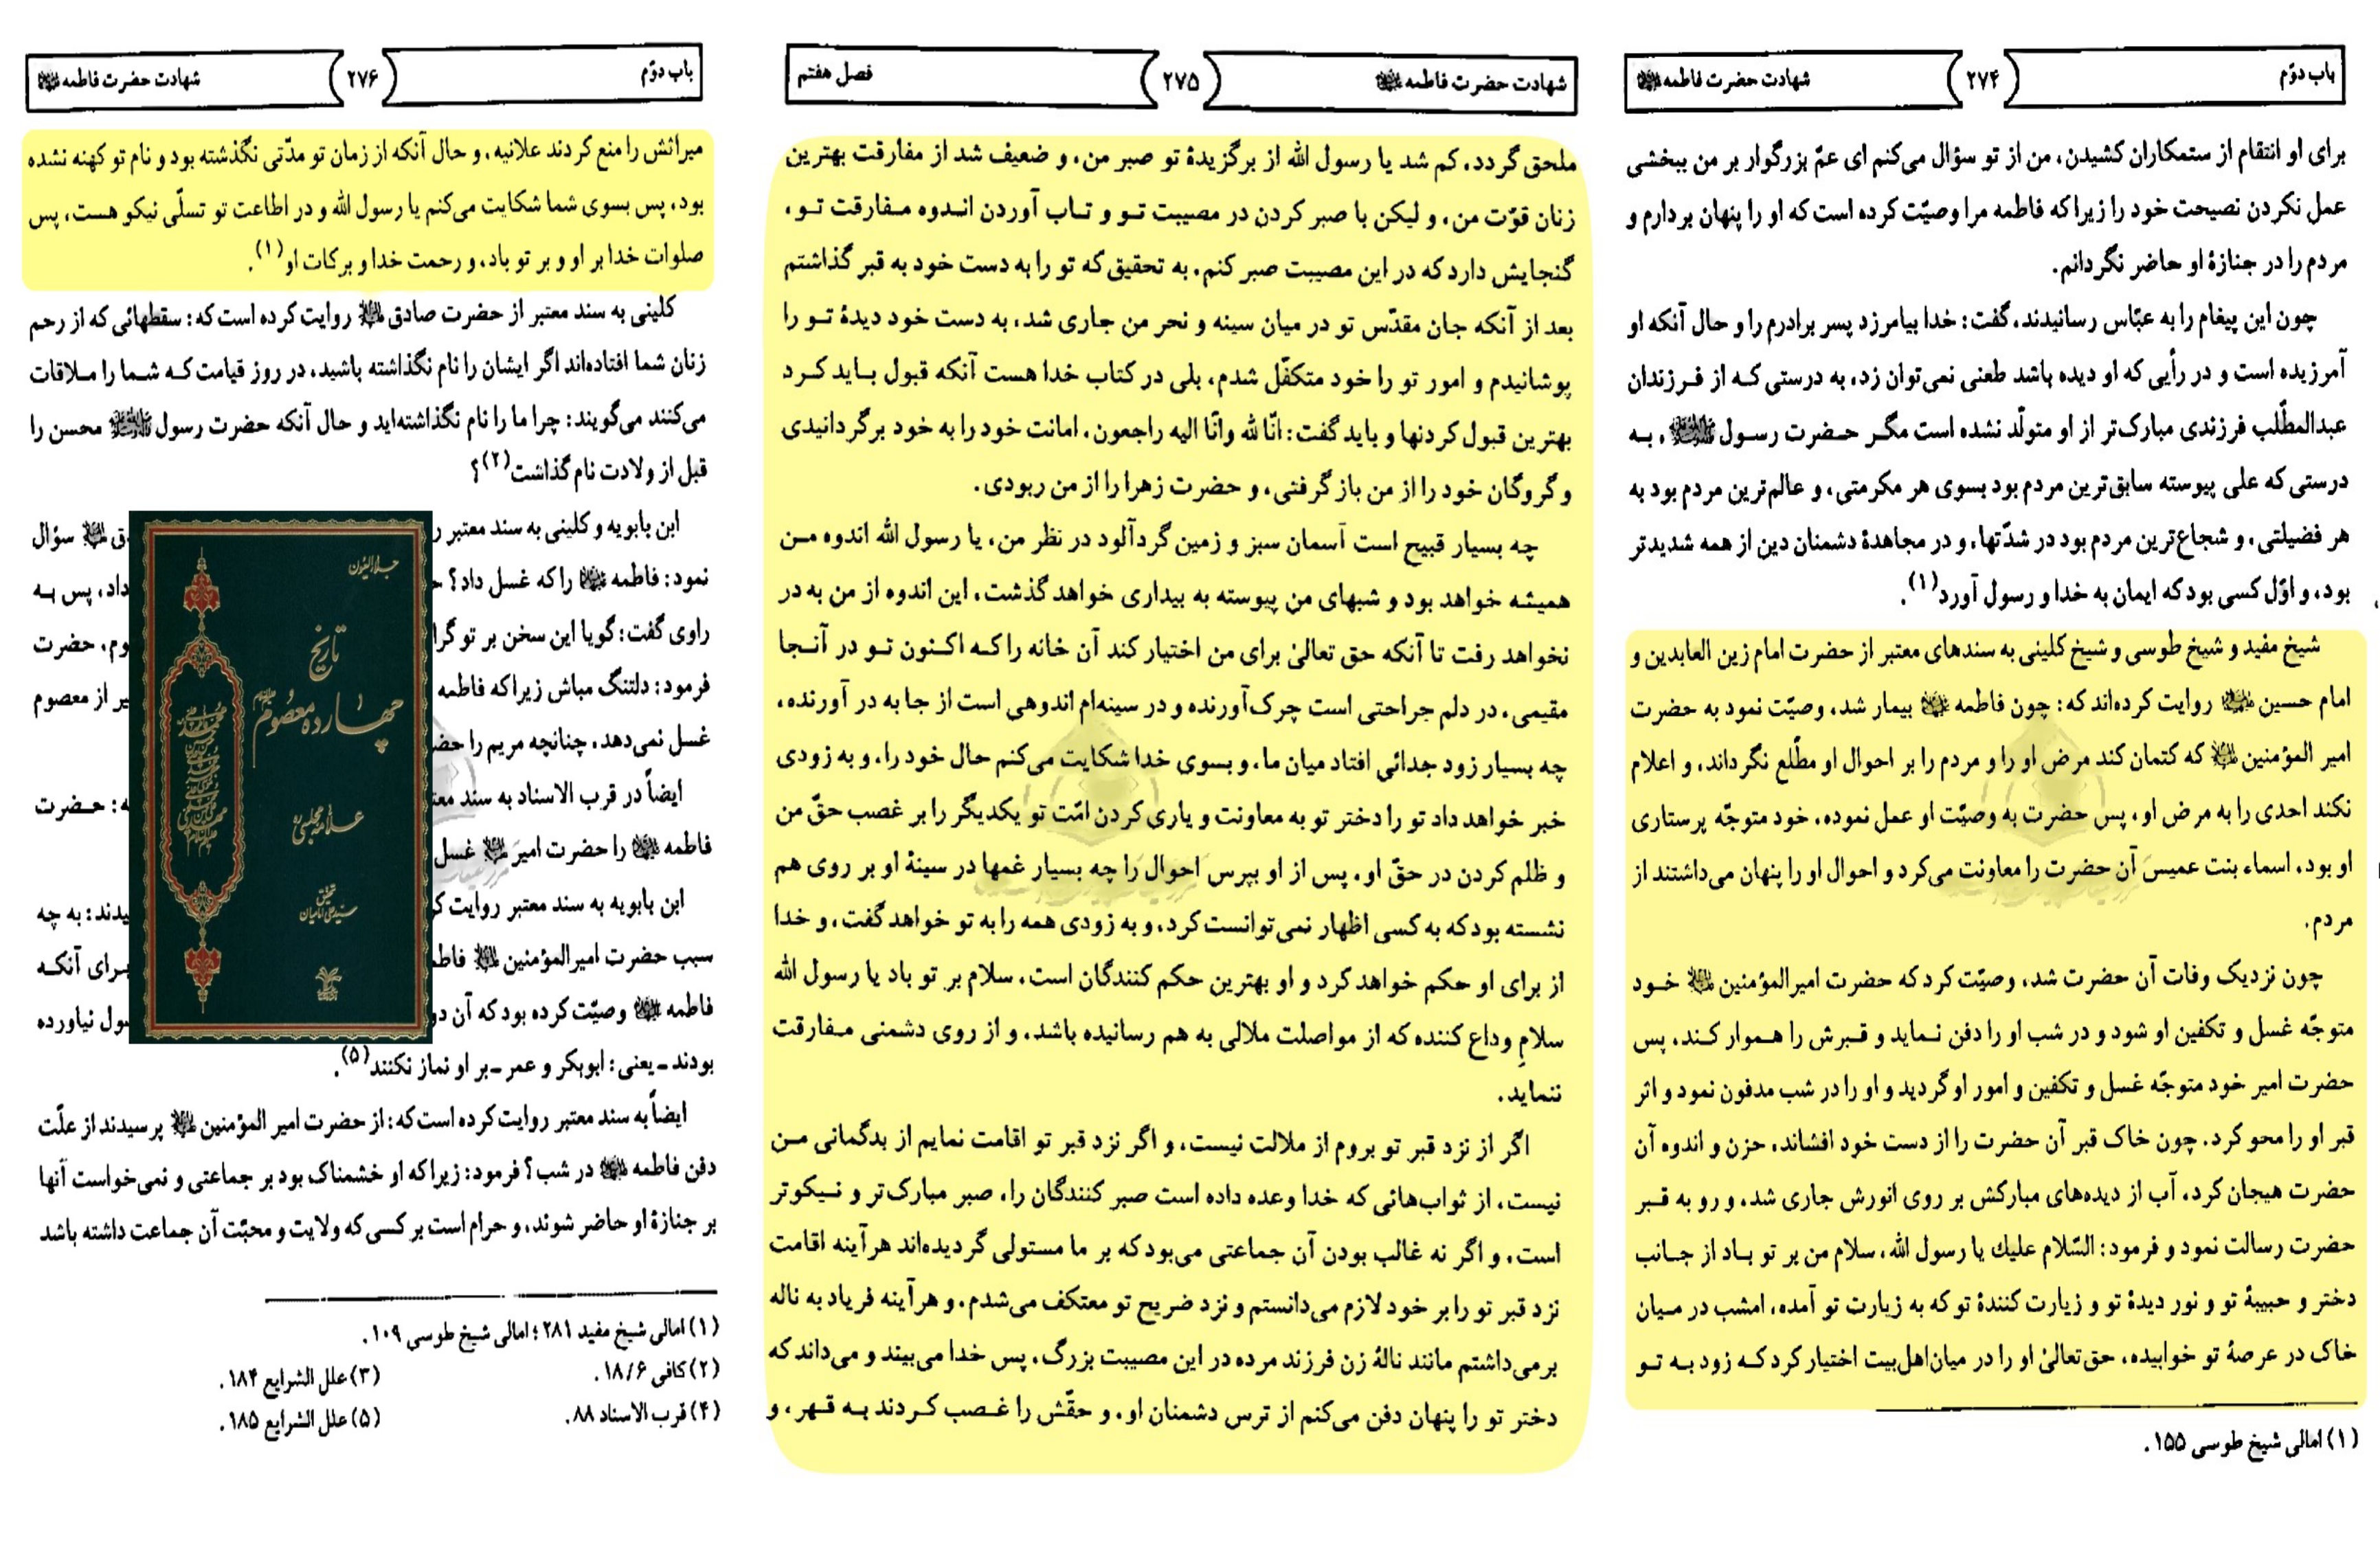 باب دوّم
۲۷۴
شهادت حضرت فاطمه
برای او انتقام از ستمکاران کشیدن، من از تو سؤال می‌کنم ای عمّ بزرگوار بر من ببخشی
عمل نکردن نصیحت خود را زیرا که فاطمه مرا وصیّت کرده است که او را پنهان بردارم و
مردم را در جنازهٔ او حاضر نگردانم.
چون این پیغام را به عبّاس رسانیدند، گفت: خدا بیامرزد پسر برادرم را و حال آنکه او
آمرزیده است و در رأیی که او دیده باشد طعنی نمی‌توان زد، به درستی که از فرزندان
عبدالمطّلب فرزندی مبارک‌تر از او متولّد نشده است مگر حضرت رسول، به
درستی که علی پیوسته سابق‌ترین مردم بود بسوی هر مکرمتی، و عالم‌ترین مردم بود به
هر فضیلتی، و شجاع‌ترین مردم بود در شدّتها، و در مجاهدهٔ دشمنان دین از همه شدیدتر
بود، و اوّل کسی بود که ایمان به خدا و رسول آورد(۱).
شیخ مفید و شیخ طوسی و شیخ کلینی به سندهای معتبر از حضرت امام زین العابدین و
امام حسین روایت کرده‌اند که: چون فاطمه بیمار شد، وصیّت نمود به حضرت
امیر المؤمنین که کتمان کند مرض او را و مردم را بر احوال او مطّلع نگرداند، و اعلام
نکند احدی را به مرض او، پس حضرت به وصیّت او عمل نموده، خود متوجّه پرستاری
او بود، اسماء بنت عمیس آن حضرت را معاونت می‌کرد و احوال او را پنهان می‌داشتند از
مردم.
چون نزدیک وفات آن حضرت شد، وصیّت کرد که حضرت امیرالمؤمنین خود
متوجّه غسل و تکفین او شود و در شب او را دفن نماید و قبرش را هموار کند، پس
حضرت امیر خود متوجّه غسل و تکفین و امور او گردید و او را در شب مدفون نمود و اثر
قبر او را محو کرد. چون خاک قبر آن حضرت را از دست خود افشاند، حزن و اندوه آن
حضرت هیجان کرد، آب از دیده‌های مبارکش بر روی انورش جاری شد، و رو به قبر
حضرت رسالت نمود و فرمود: السّلام علیك یا رسول الله، سلام من بر تو باد از جانب
دختر و حبیبهٔ تو و نور دیدهٔ تو و زیارت کنندهٔ تو که به زیارت تو آمده، امشب در میان
خاک در عرصهٔ تو خوابیده، حق‌تعالیٰ او را در میان اهل‌بیت اختیار کرد که زود به تو
(۱) امالی شیخ طوسی ۱۵۵.
شهادت حضرت فاطمه
۲۷۵
فصل هفتم
ملحق گردد، کم شد یا رسول الله از برگزیدهٔ تو صبر من، و ضعیف شد از مفارقت بهترین
زنان قوّت من، و لیکن با صبر کردن در مصیبت تو و تاب آوردن اندوه مفارقت تو،
گنجایش دارد که در این مصیبت صبر کنم، به تحقیق که تو را به دست خود به قبر گذاشتم
بعد از آنکه جان مقدّس تو در میان سینه و نحر من جاری شد، به دست خود دیدهٔ تو را
پوشانیدم و امور تو را خود متکفّل شدم، بلی در کتاب خدا هست آنکه قبول باید کرد
بهترین قبول کردنها و باید گفت: انّا لله وانّا الیه راجعون، امانت خود را به خود برگردانیدی
و گروگان خود را از من باز گرفتی، و حضرت زهرا را از من ربودی.
چه بسیار قبیح است آسمان سبز و زمین گردآلود در نظر من، یا رسول الله اندوه من
همیشه خواهد بود و شبهای من پیوسته به بیداری خواهد گذشت، این اندوه از من به در
نخواهد رفت تا آنکه حق تعالیٰ برای من اختیار کند آن خانه را که اکنون تو در آنجا
مقیمی، در دلم جراحتی است چرک‌آورنده و در سینه‌ام اندوهی است از جا به در آورنده،
چه بسیار زود جدائی افتاد میان ما، و بسوی خدا شکایت می‌کنم حال خود را، و به زودی
خبر خواهد داد تو را دختر تو به معاونت و یاری کردن امّت تو یکدیگر را بر غصب حقّ من
و ظلم کردن در حقّ او، پس از او بپرس احوال را چه بسیار غمها در سینهٔ او بر روی هم
نشسته بود که به کسی اظهار نمی‌توانست کرد، و به زودی همه را به تو خواهد گفت، و خدا
از برای او حکم خواهد کرد و او بهترین حکم کنندگان است، سلام بر تو باد یا رسول الله
سلامِ وداع کننده که از مواصلت ملالی به هم رسانیده باشد، و از روی دشمنی مفارقت
ننماید.
اگر از نزد قبر تو بروم از ملالت نیست، و اگر نزد قبر تو اقامت نمایم از بدگمانی من
نیست، از ثواب‌هائی که خدا وعده داده است صبر کنندگان را، صبر مبارک‌تر و نیکوتر
است، و اگر نه غالب بودن آن جماعتی می‌بود که بر ما مستولی گردیده‌اند هرآینه اقامت
نزد قبر تو را بر خود لازم می‌دانستم و نزد ضریح تو معتکف می‌شدم، و هرآینه فریاد به ناله
برمی‌داشتم مانند نالهٔ زن فرزند مرده در این مصیبت بزرگ، پس خدا می‌بیند و می‌داند که
دختر تو را پنهان دفن می‌کنم از ترس دشمنان او، و حقّش را غصب کردند به قهر، و
باب دوّم
۲۷۶
شهادت حضرت فاطمه
میراثش را منع کردند علانیه، و حال آنکه از زمان تو مدّتی نگذشته بود و نام تو کهنه نشده
بود، پس بسوی شما شکایت می‌کنم یا رسول الله و در اطاعت تو تسلّی نیکو هست، پس
صلوات خدا بر او و بر تو باد، و رحمت خدا و برکات او(۱).
کلینی به سند معتبر از حضرت صادق روایت کرده است که: سقطهائی که از رحم
زنان شما افتاده‌اند اگر ایشان را نام نگذاشته باشید، در روز قیامت که شما را ملاقات
می‌کنند می‌گویند: چرا ما را نام نگذاشته‌اید و حال آنکه حضرت رسول محسن را
قبل از ولادت نام گذاشت(۲)؟
ابن بابویه و کلینی به سند معتبر ر سؤال
نمود: فاطمه را که غسل داد؟ داد، پس به
راوی گفت: گویا این سخن بر تو گرا وم، حضرت
فرمود: دلتنگ مباش زیرا که فاطمه یر از معصوم
غسل نمی‌دهد، چنانچه مریم را حضر
ایضاً در قرب الاسناد به سند معت ه: حضرت
فاطمه را حضرت امیر غسل
ابن بابویه به سند معتبر روایت کر یدند: به چه
سبب حضرت امیرالمؤمنین فاطم برای آنکه
فاطمه وصیّت کرده بود که آن دو سول نیاورده
بودند ـ یعنی: ابوبکر و عمر ـ بر او نماز نکنند(۵).
ایضاً به سند معتبر روایت کرده است که: از حضرت امیر المؤمنین پرسیدند از علّت
دفن فاطمه در شب؟ فرمود: زیرا که او خشمناک بود بر جماعتی و نمی‌خواست آنها
بر جنازهٔ او حاضر شوند، و حرام است بر کسی که ولایت و محبّت آن جماعت داشته باشد
(۱) امالی شیخ مفید ۲۸۱؛ امالی شیخ طوسی ۱۰۹.
(۲) کافی ۱۸/۶.
(۳) علل الشرایع ۱۸۴.
(۴) قرب الاسناد ۸۸.
(۵) علل الشرایع ۱۸۵.
جلاءالعیون
تاریخ
چهارده معصوم
علامه مجلسی ره
تحقیق
سید علی امامیان